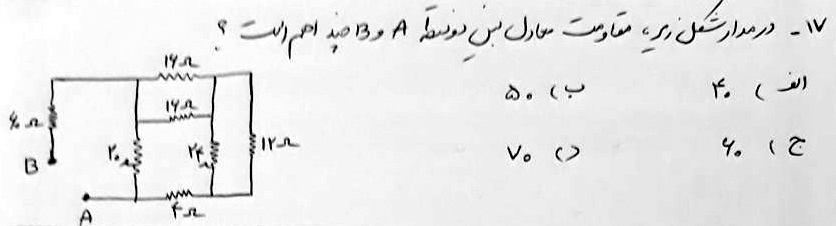 ۱۷ - در مدار شکل زیر، مقاومت معادل بین دو نقطه A و B چند اهم است ؟
الف ) ۴۰ ب ) ۵۰
ج ) ۶۰ د ) ۷۰
۱۶Ω
۱۶Ω
۶۰Ω ۲۰Ω ۲۴Ω ۱۲Ω
B
A ۴Ω